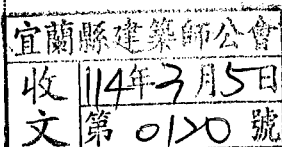 宜蘭縣建築師公會
收文
114年3月5日
第 0120 號